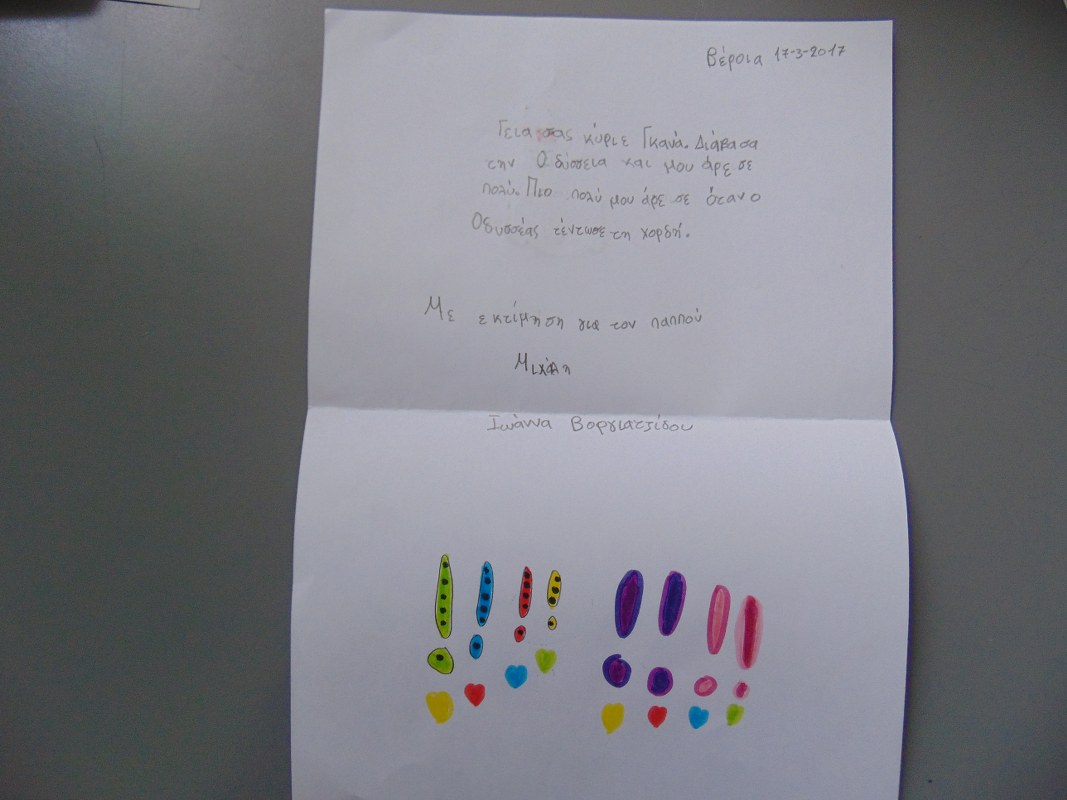 Βέροια 17-3-2017
Γεια σας κύριε Γκανά. Διάβασα
την Οδύσσεια και μου άρε σε
πολύ. Πιο πολύ μου άρε σε όταν ο
Οδυσσέας τέντωσε τη χορδή.
Με εκτίμηση για τον παππού
Μιχάλη
Ιωάννα Βοργιατζίδου